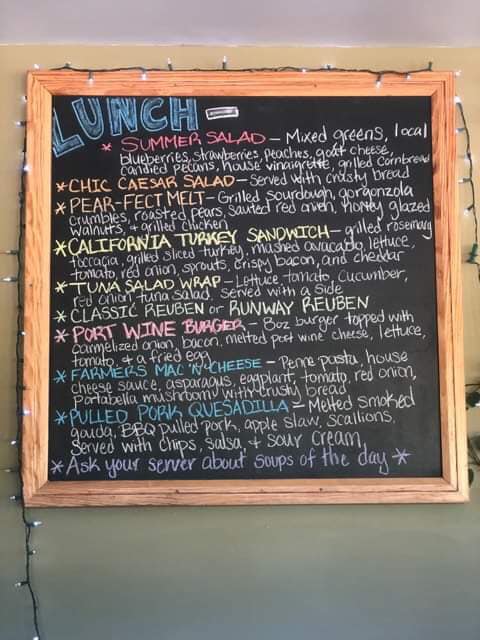 LUNCH
* SUMMER SALAD - Mixed greens, local
blueberries, strawberries, peaches, goat cheese,
candied pecans, house vinaigrette, grilled cornbread
* CHIC CAESAR SALAD - Served with crusty bread
* PEAR-FECT MELT - Grilled sourdough, gorgonzola
crumbles, roasted pears, sauted red onion, honey glazed
walnuts, & grilled chicken
* CALIFORNIA TURKEY SANDWICH - grilled rosemary
foccacia, grilled sliced turkey, mushed avacado, lettuce,
tomato, red onion, sprouts, crispy bacon, and cheddar
* TUNA SALAD WRAP - Lettuce, tomato, cucumber,
red onion, tuna salad, served with a side
* CLASSIC REUBEN or RUNWAY REUBEN
* PORT WINE BURGER - 8oz burger topped with
carmelized onion, bacon, melted port wine cheese, lettuce,
tomato, & a fried egg
* FARMERS MAC 'N' CHEESE - Penne pasta, house
cheese sauce, asparagus, eggplant, tomato, red onion,
Portabella mushroom with crusty bread
* PULLED PORK QUESADILLA - Melted smoked
gouda, BBQ pulled pork, apple slaw, scallions,
Served with chips, salsa, + sour cream,
* Ask your server about soups of the day *